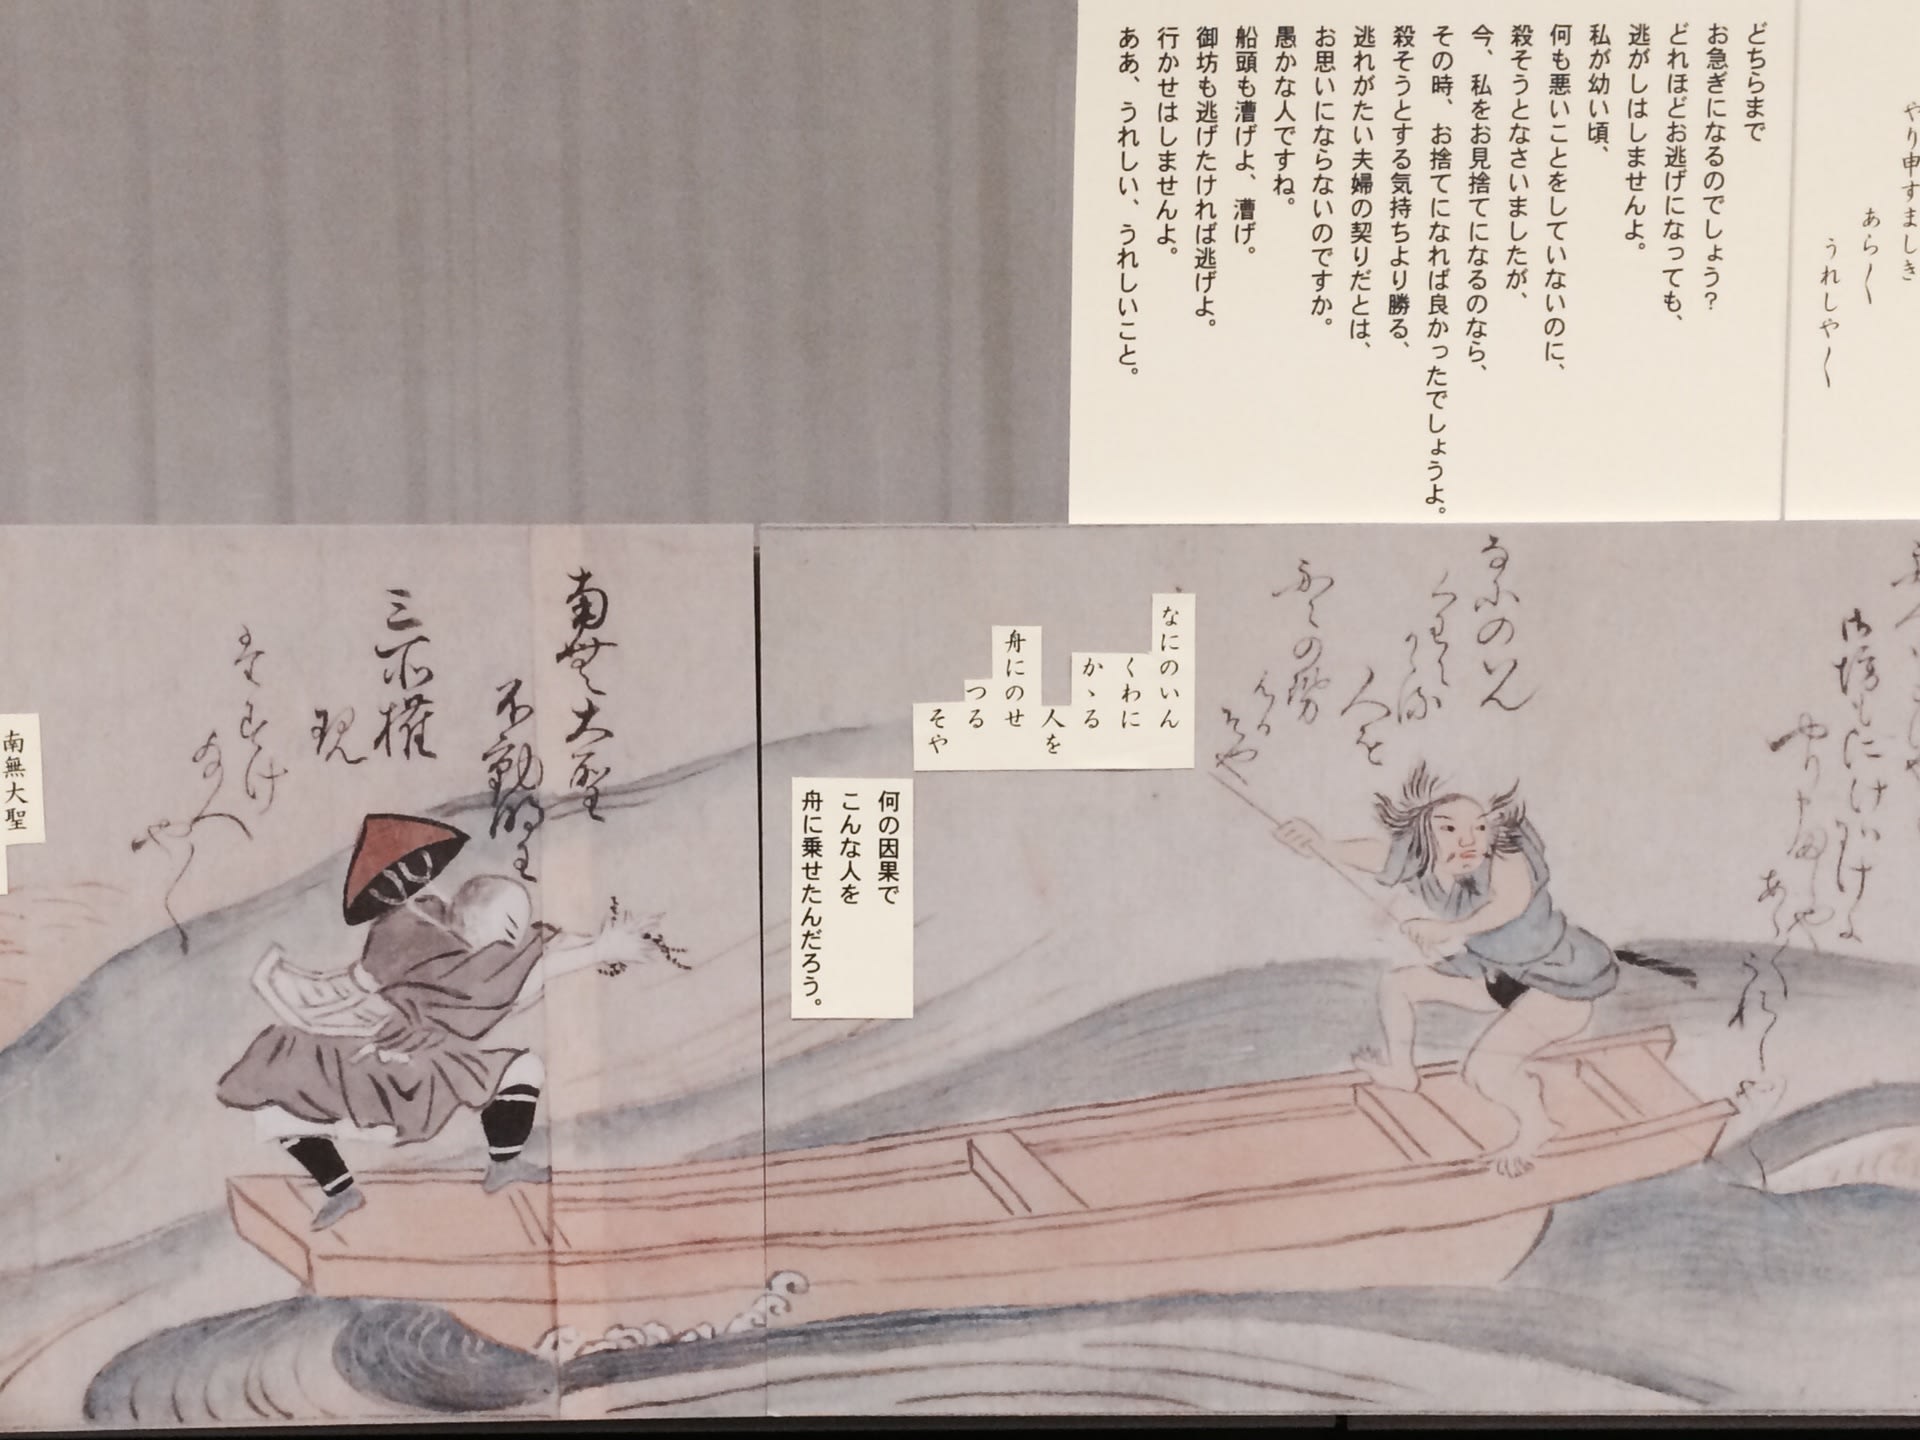 やり申すましき
あら〱
うれしや〱
どちらまで
お急ぎになるのでしょう？
どれほどお逃げになっても、
逃がしはしませんよ。
私が幼い頃、
何も悪いことをしていないのに、
殺そうとなさいましたが、
今、私をお見捨てになるのなら、
その時、お捨てになれば良かったでしょうよ。
殺そうとする気持ちより勝る、
逃れがたい夫婦の契りだとは、
お思いにならないのですか。
愚かな人ですね。
船頭も漕げよ、漕げ。
御坊も逃げたければ逃げよ。
行かせはしませんよ。
ああ、うれしい、うれしいこと。
御坊もにけはにけよ
やり申すましや
あら〱うれしや
なにのいん
くわに
かゝる
人を
なにのいん
くわに
かゝる
人を
舟にのせ
つる
そや
何の因果で
こんな人を
舟に乗せたんだろう。
南無大聖
不動明王
三所権
現
南無大聖